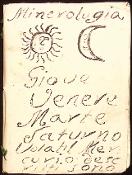 Minerologia
Giove
Venere
Marte
Saturno
Mer
curio
sono